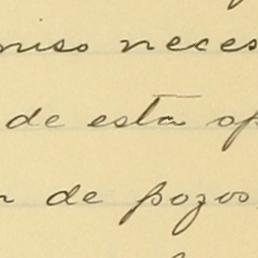 miso neces
de esta op
de pozos